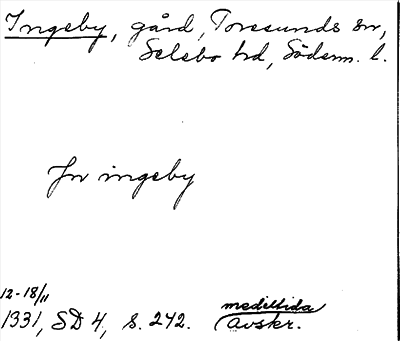 Ingeby, gård, Toresunds sn,
Selebo hd, Söderm. l.
Jn ingeby
12-18/11
1331, SD 4, s. 242. medeltida
avskr.